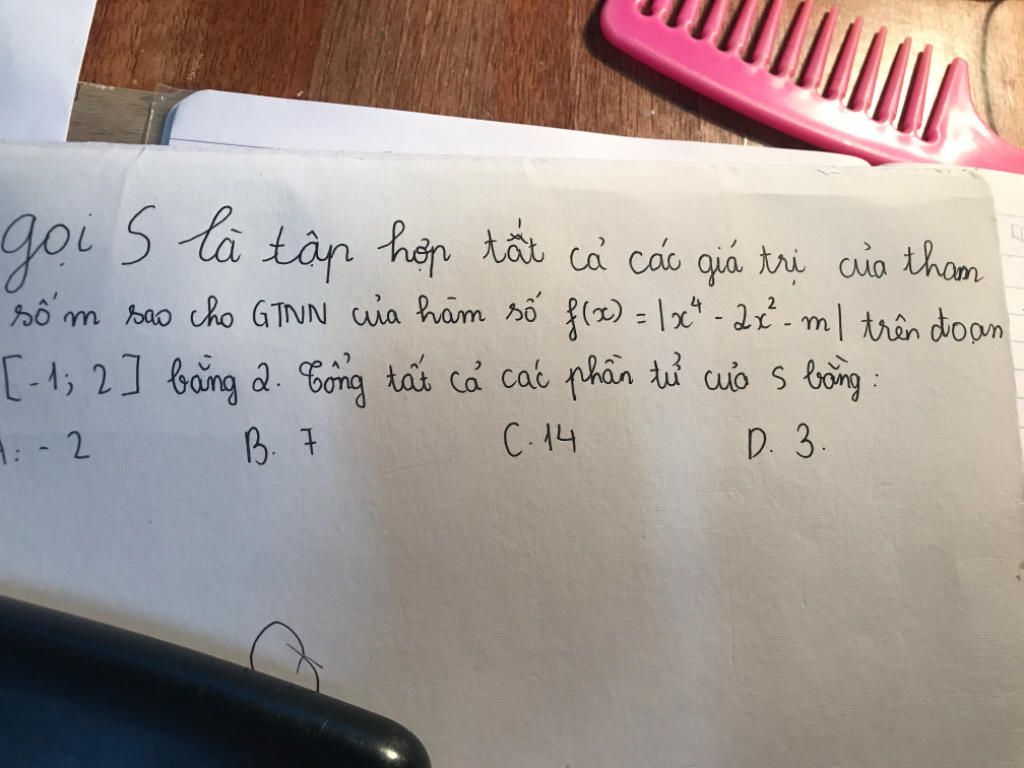 gọi S là tập hợp tất cả các giá trị của tham
số m sao cho GTNN của hàm số f(x) = |x⁴ - 2x² - m| trên đoạn
[-1; 2] bằng 2. Tổng tất cả các phần tử của S bằng:
A: - 2 B. 7 C. 14 D. 3.